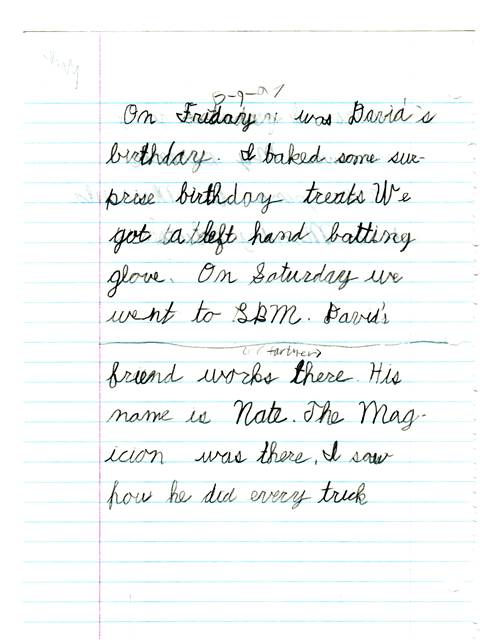 On Friday was David's
birthday. I baked some sur-
prise birthday treats We
got a left hand batting
glove. On Saturday we
went to SBM. David's
friend works there. His
name is Nate. The Mag-
icion was there, I saw
how he did every trick